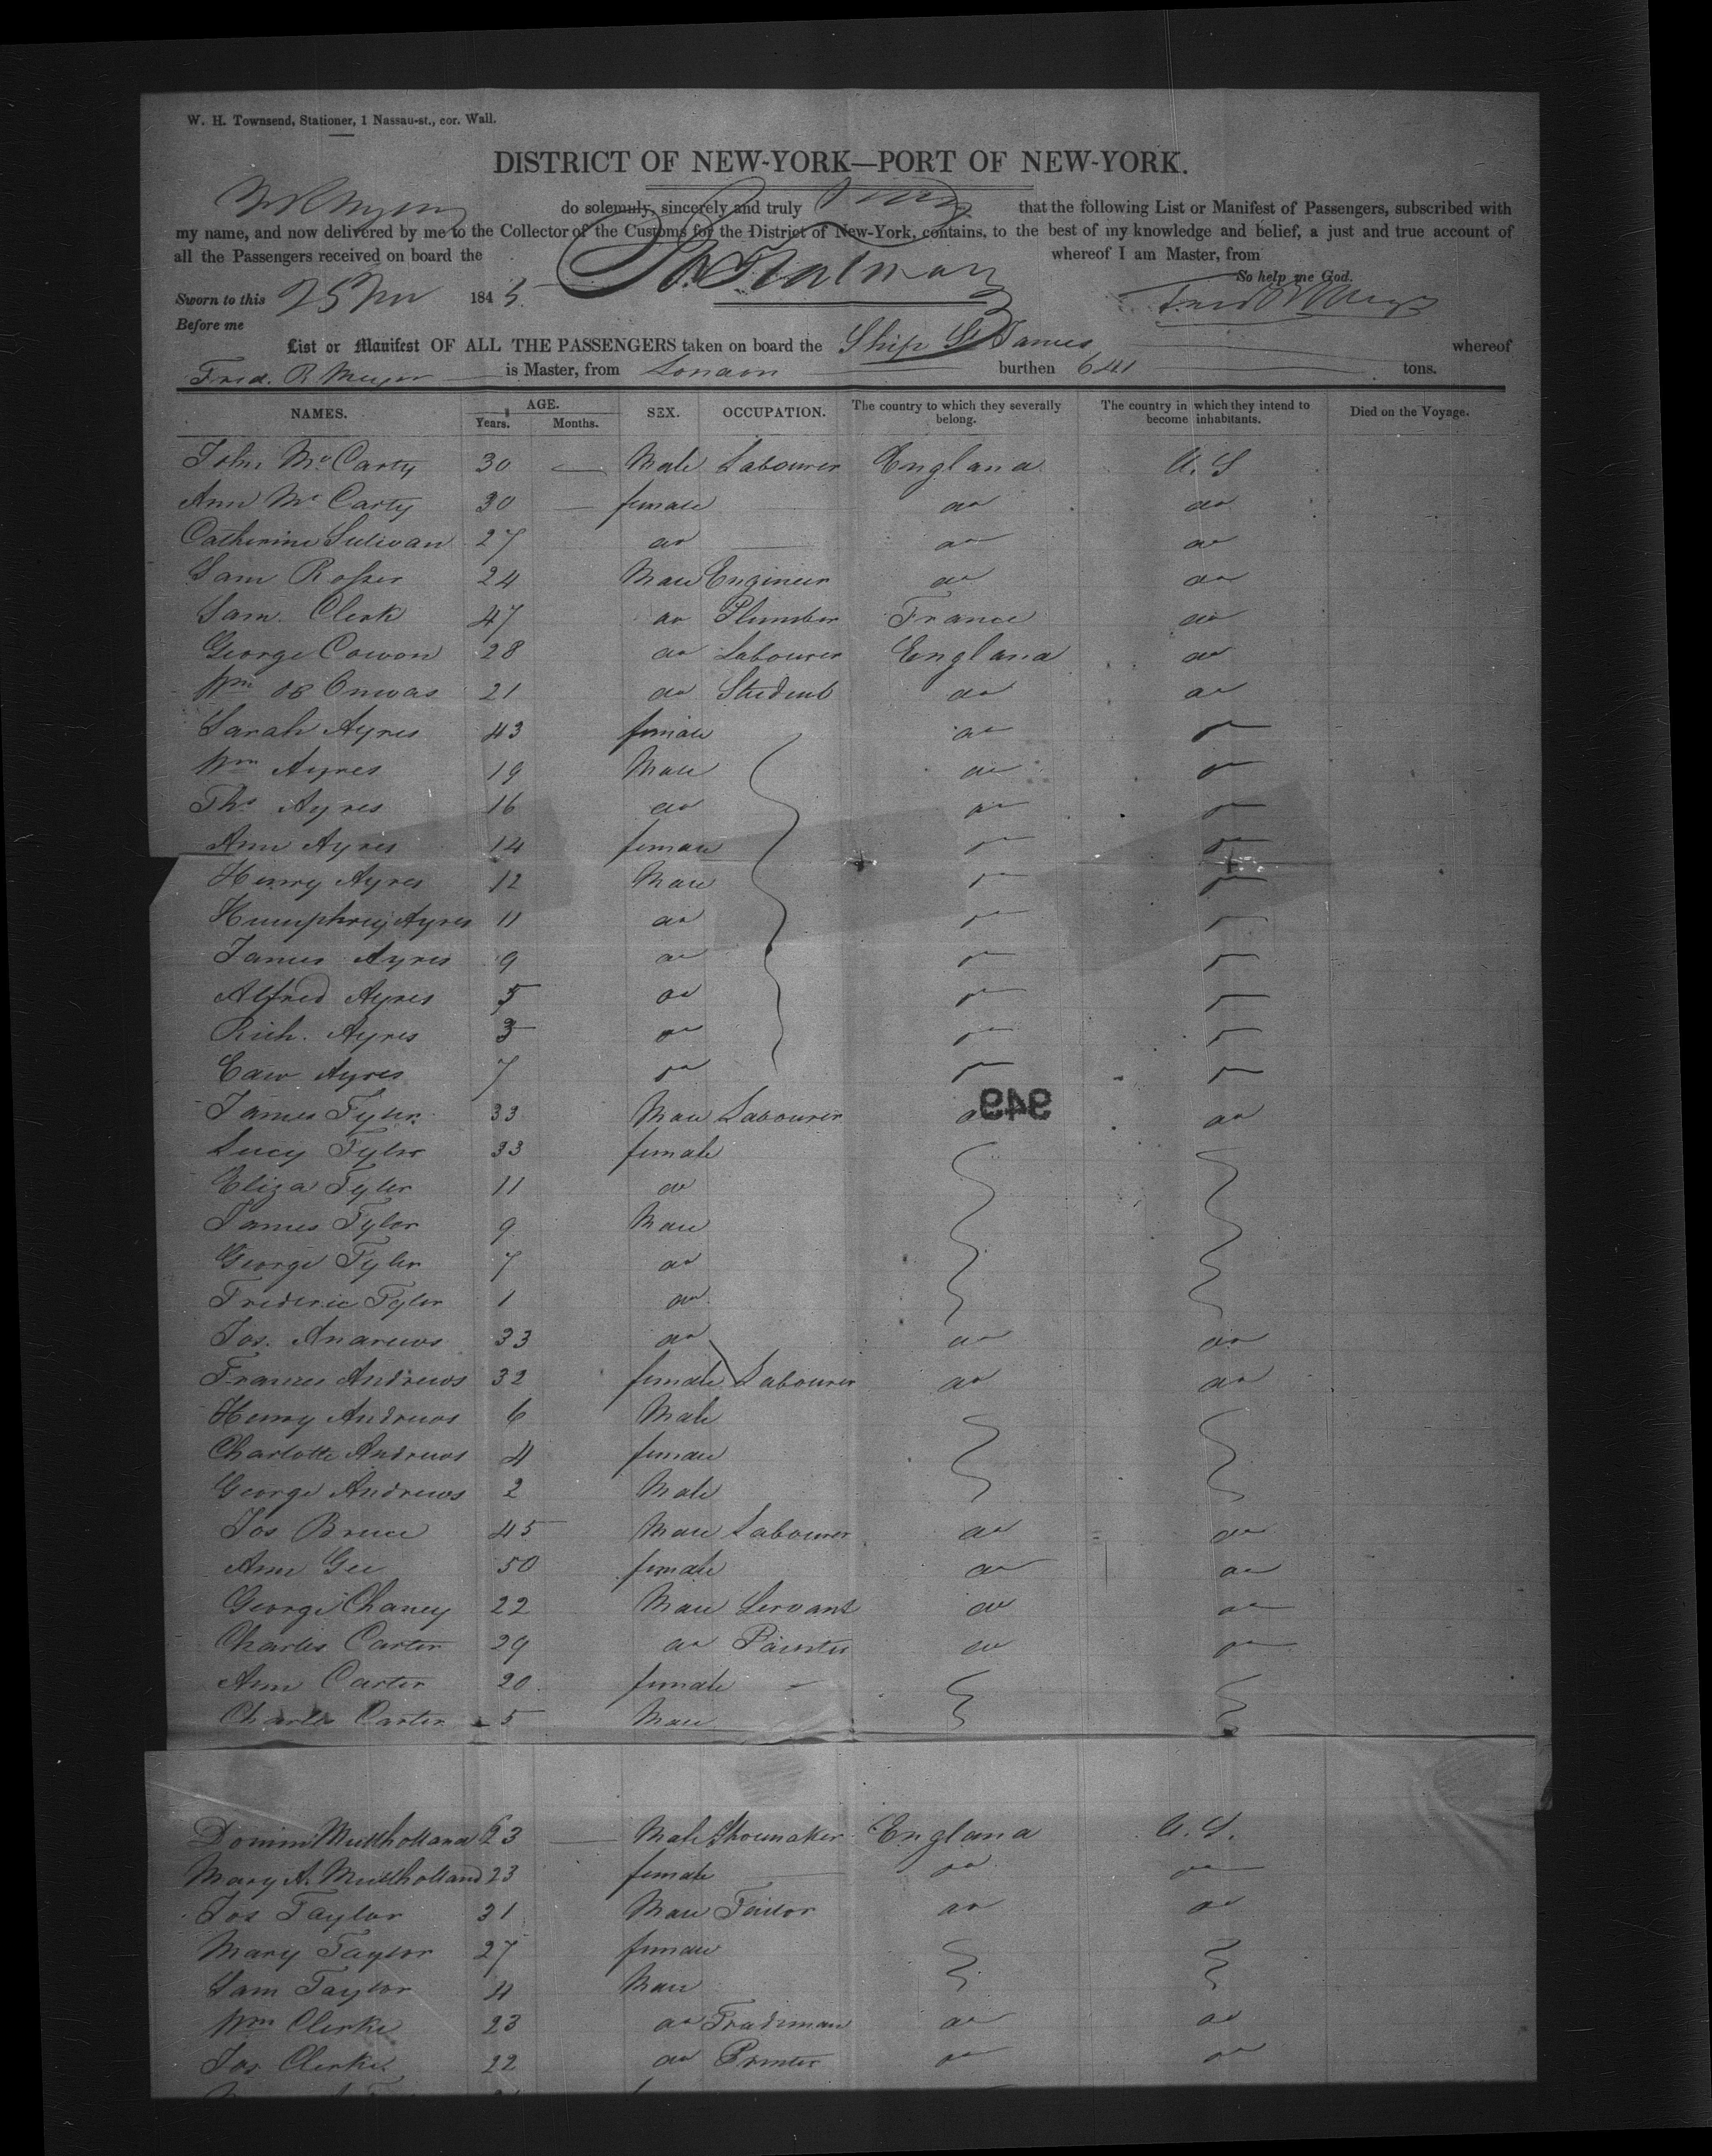 W. H. Townsend, Stationer, 1 Nassau-st., cor. Wall.
DISTRICT OF NEW-YORK—PORT OF NEW-YORK.
do solemnly, sincerely and truly that the following List or Manifest of Passengers, subscribed with
my name, and now delivered by me to the Collector of the Customs for the District of New-York, contains, to the best of my knowledge and belief, a just and true account of
all the Passengers received on board the whereof I am Master, from
So help me God.
Sworn to this 25 1845
Before me
List or Manifest OF ALL THE PASSENGERS taken on board the Ship St James whereof
Fred. R Meyer is Master, from London burthen 641 tons.
NAMES. AGE. Years. Months. SEX. OCCUPATION. The country to which they severally belong. The country in which they intend to become inhabitants. Died on the Voyage.
John McCarty 30 — Male Labourer England U. S
Ann McCarty 30 — female do do
Catherine Sulivan 27 do — do do
Sam Rosser 24 Male Engineer do do
Sam. Clerk 47 do Plumber France do
George Cowon 28 do Labourer England do
Wm 21 do Student do do
Sarah Ayres 43 female do do
Wm Ayres 19 Male do do
Ths Ayres 16 do do do
Ann Ayres 14 female do do
Henry Ayres 12 Male do do
Humphrey Ayres 11 do do do
James Ayres 9 do do do
Alfred Ayres 5 do do do
Rich. Ayres 3 do do do
Edw Ayres 7 do do do
949
James Tyler 33 Male Labourer do do
Lucy Tyler 33 female
Eliza Tyler 11 do
James Tyler 9 Male
George Tyler 7 do
Frederic Tyler 1 do
Jos. Andrews 33 do do do
Frances Andrews 32 female Labourer do do
Henry Andrews 6 Male
Charlotte Andrews 4 female
George Andrews 2 Male
Jos Bruce 45 Male Labourer do do
Ann Gee 50 female do do
George Chaney 22 Male Servant do do
Charles Carter 29 do Painter do do
Ann Carter 20 female -
Charles Carter 5 Male
Mullholland 23 — Male Shoemaker England U. S.
Mary A. Mullholland 23 female — do do
Jos Taylor 31 Male Tailor do do
Mary Taylor 27 female
Sam Taylor 4 Male
Wm Clerke 23 do Tradsman do do
Jos Clerke 22 do Printer do do